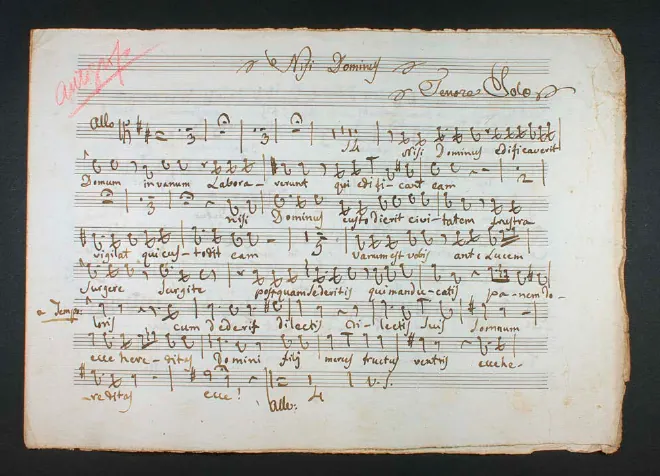 autografo
Nisi Dominus
Tenore Solo
Allo 3 3 14 Nisi Dominus edificaverit
Domum in vanum Labora- verunt qui edifi- cant eam 2
3 Nisi Dominus custodierit civi- tatem frustra
vigilat qui cus- todit eam 3 Vanum est vobis ante Lucem
Surgere Surgite postquam sederitis qui mandu- catis pa- nem Do-
a Tempo loris cum dederit dilectis di- lectis suis Somnum
ecce here- ditas Domini filij merces fructus ventris ecce he-
reditas ecce! 4 V. S.
Allo: